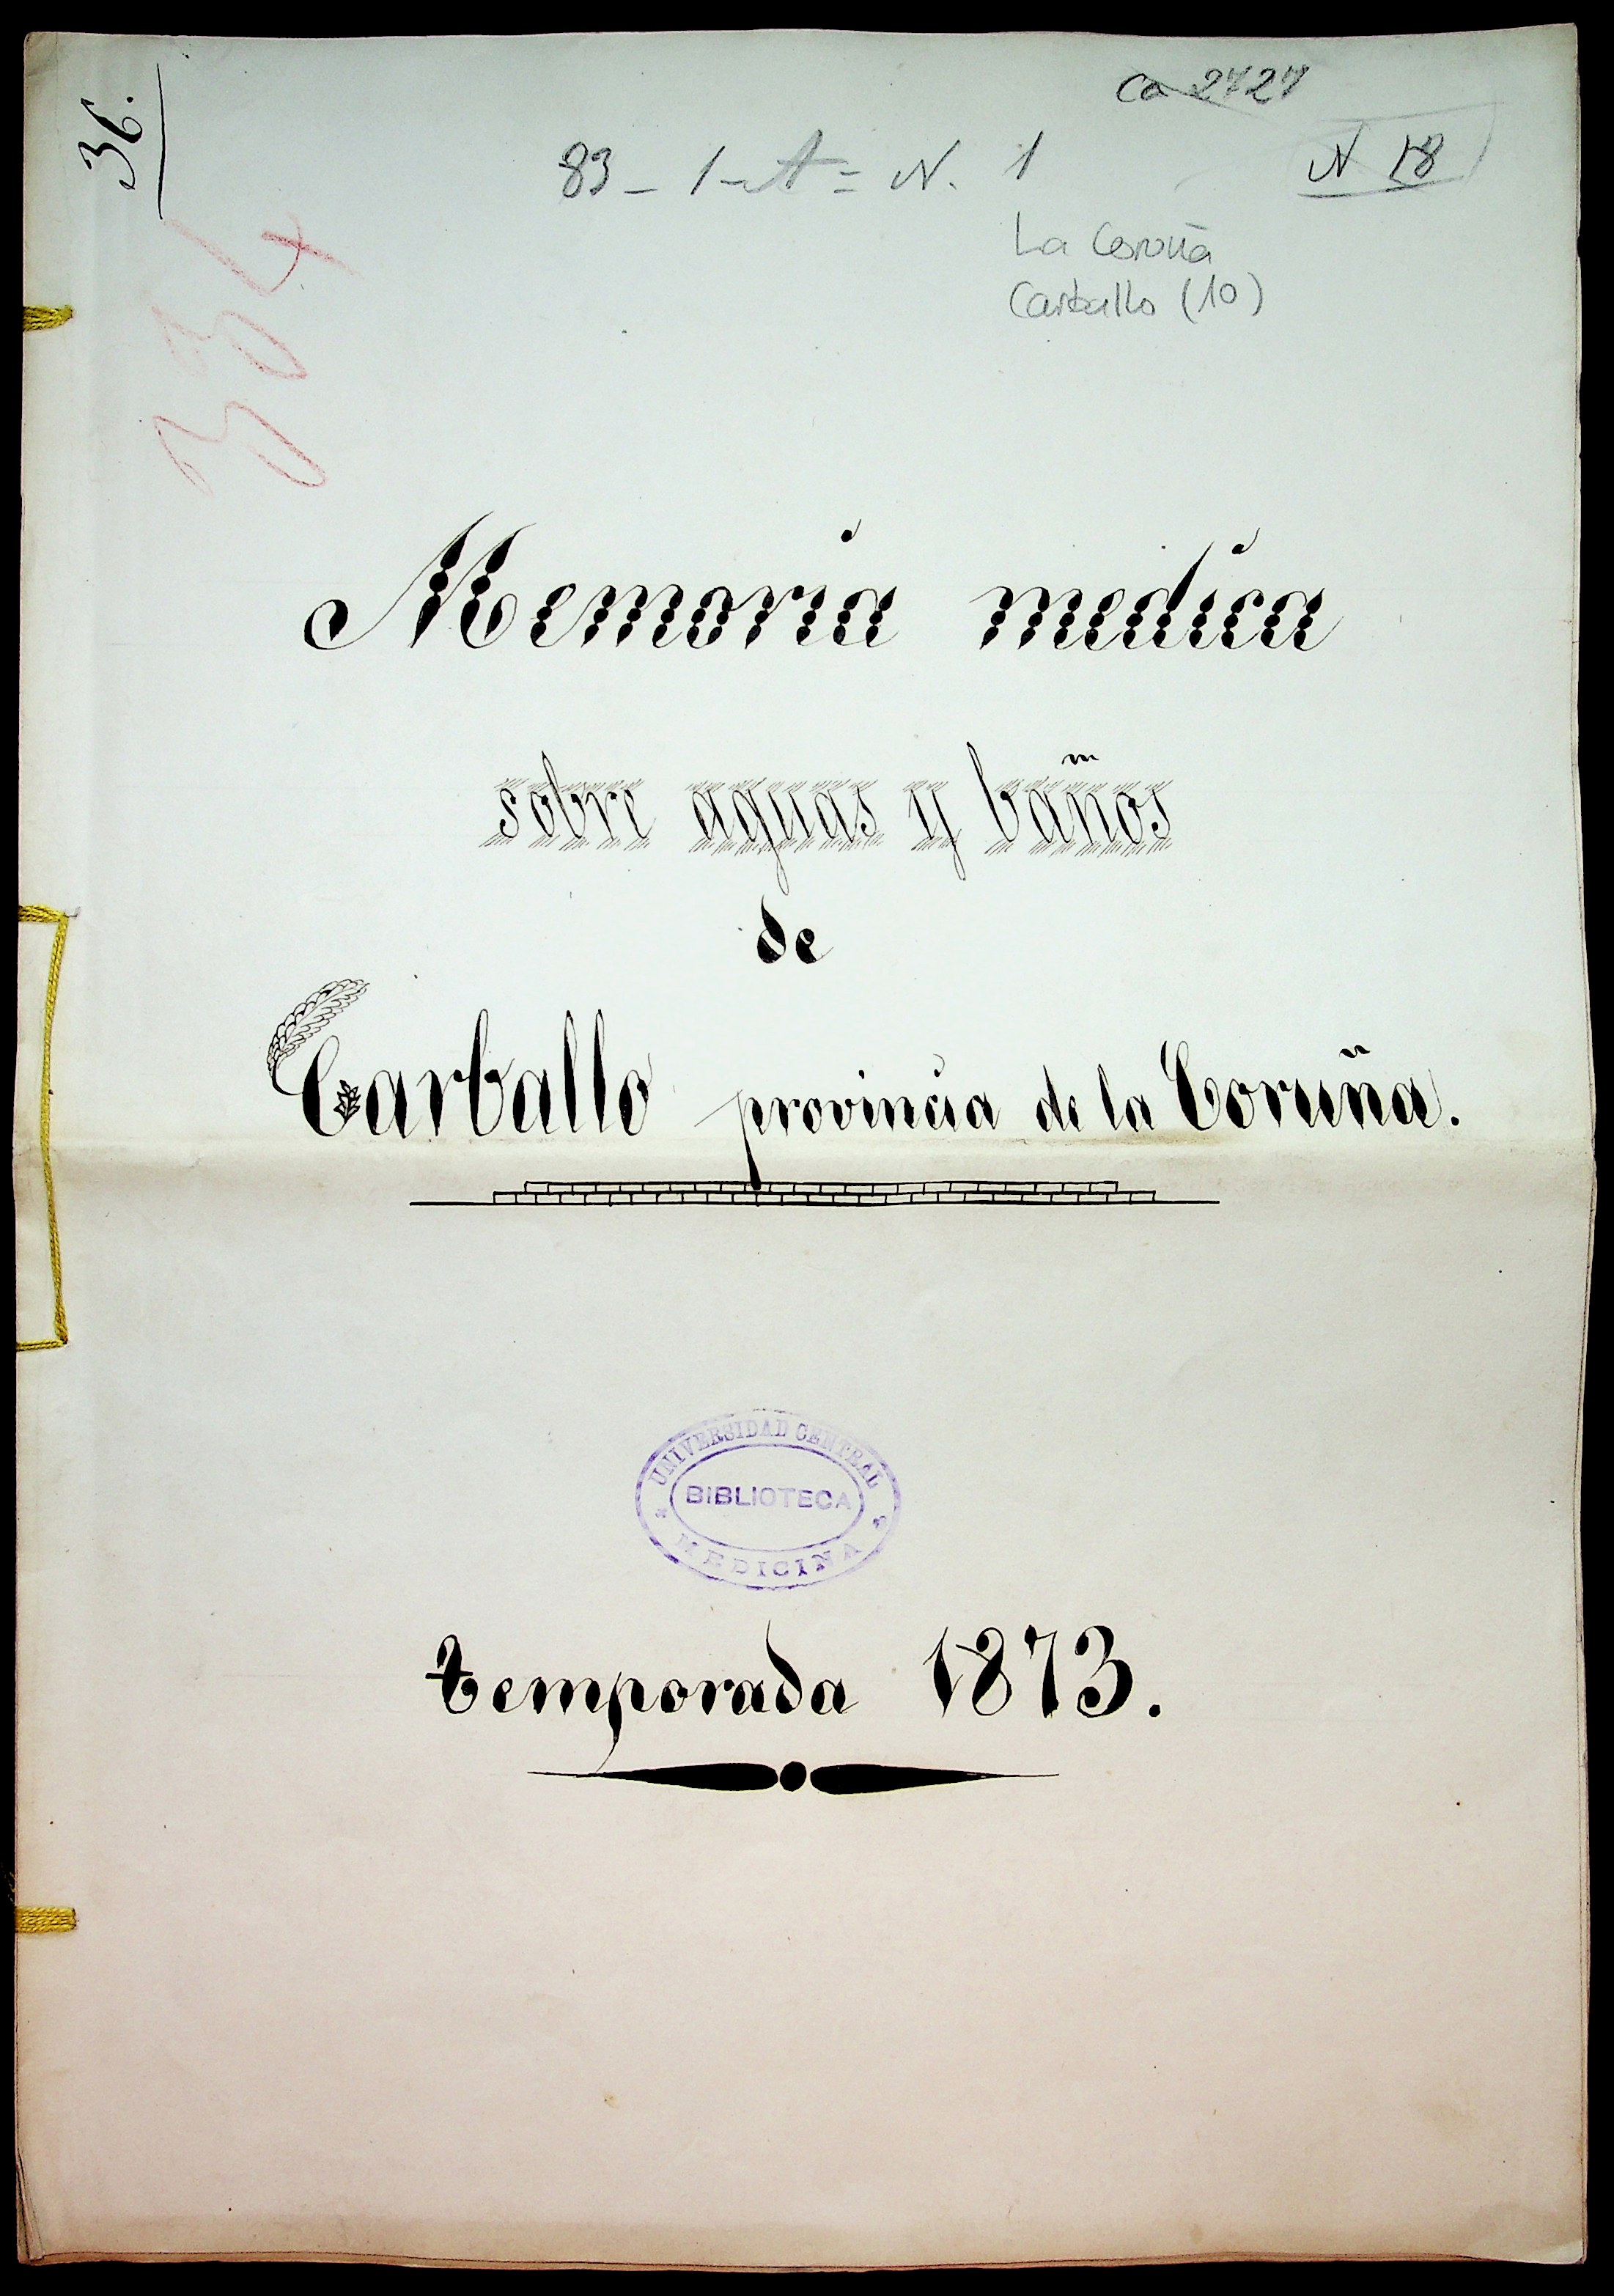 36.
334
Ca 2727
83 - 1 - A = N. 1
N 18
La Coruña
Carballo (10)
Memoria medica
sobre aguas y baños
de
Carballo provincia de la Coruña.
UNIVERSIDAD CENTRAL
BIBLIOTECA
MEDICINA
temporada 1873.